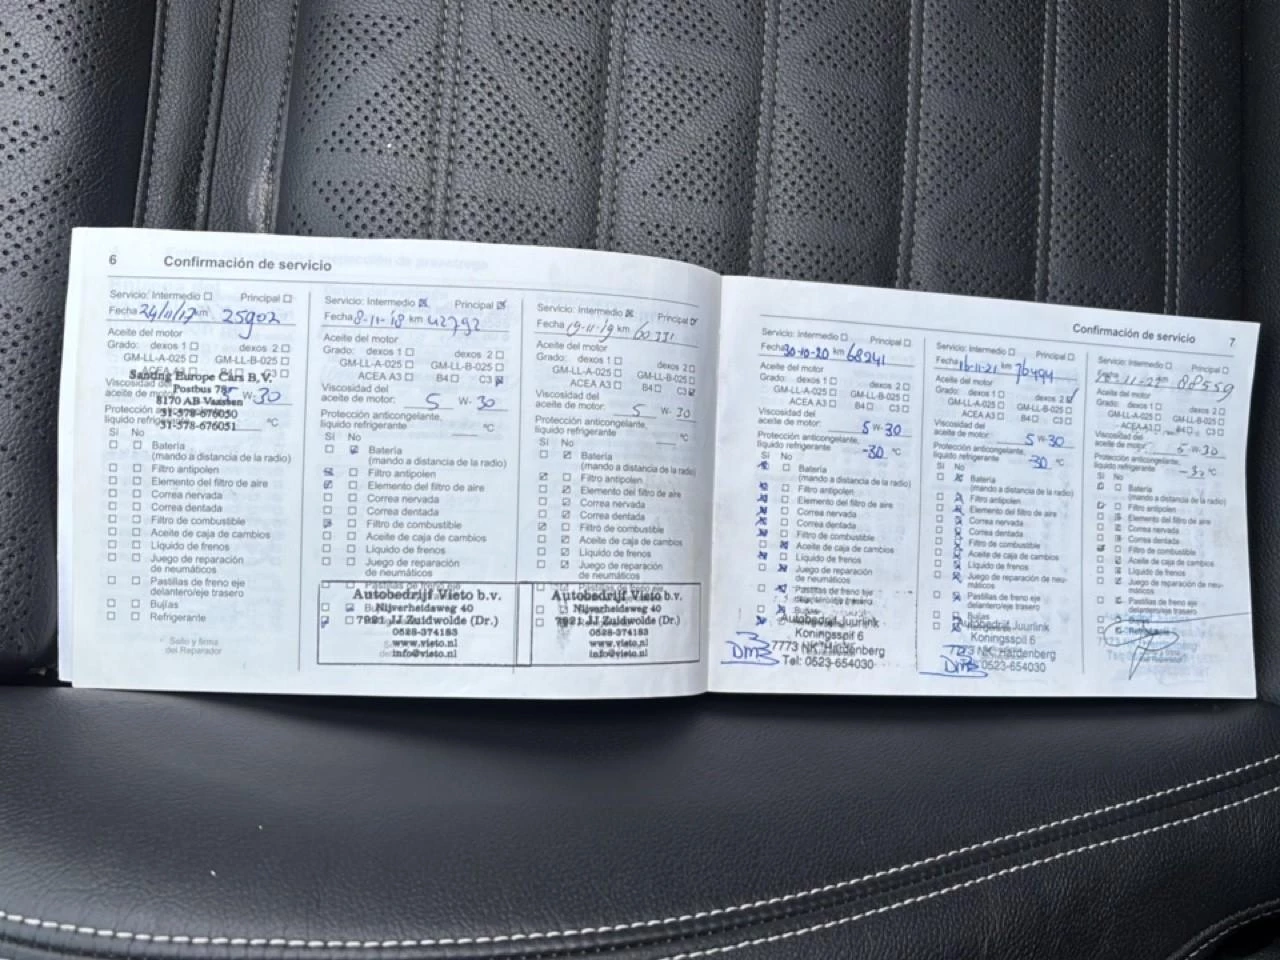 6 Confirmación de servicio
Servicio: Intermedio Principal
Fecha 24/11/17 km 25902
Aceite del motor
Grado: dexos 1 dexos 2
GM-LL-A-025 GM-LL-B-025
ACEA A3 B4 C3
Sanding Europe Cars B.V.
Viscosidad del
Postbus 78
aceite de motor: 5 W-30
8170 AB Vaassen
Protección anticongelante,
31-578-676050
líquido refrigerante °C
31-578-676051
Sí No
Batería
(mando a distancia de la radio)
Filtro antipolen
Elemento del filtro de aire
Correa nervada
Correa dentada
Filtro de combustible
Aceite de caja de cambios
Líquido de frenos
Juego de reparación
de neumáticos
Pastillas de freno eje
delantero/eje trasero
Bujías
Refrigerante
Sello y firma
del Reparador
Servicio: Intermedio Principal
Fecha 8-11-18 km 42792
Aceite del motor
Grado: dexos 1 dexos 2
GM-LL-A-025 GM-LL-B-025
ACEA A3 B4 C3
Viscosidad del
aceite de motor: 5 W-30
Protección anticongelante,
líquido refrigerante °C
Sí No
Batería
(mando a distancia de la radio)
Filtro antipolen
Elemento del filtro de aire
Correa nervada
Correa dentada
Filtro de combustible
Aceite de caja de cambios
Líquido de frenos
Juego de reparación
de neumáticos
Pastillas de freno eje
Autobedrijf Vieto b.v.
Nijverheidsweg 40
7921 JJ Zuidwolde (Dr.)
0528-374183
www.vieto.nl
info@vieto.nl
Servicio: Intermedio Principal
Fecha 19-11-19 km 60331
Aceite del motor
Grado: dexos 1 dexos 2
GM-LL-A-025 GM-LL-B-025
ACEA A3 B4 C3
Viscosidad del
aceite de motor: 5 W-30
Protección anticongelante,
líquido refrigerante °C
Sí No
Batería
(mando a distancia de la radio)
Filtro antipolen
Elemento del filtro de aire
Correa nervada
Correa dentada
Filtro de combustible
Aceite de caja de cambios
Líquido de frenos
Juego de reparación
de neumáticos
Pastillas de freno eje
Autobedrijf Vieto b.v.
Nijverheidsweg 40
7921 JJ Zuidwolde (Dr.)
0528-374183
www.vieto.nl
info@vieto.nl
Confirmación de servicio 7
Servicio: Intermedio Principal
Fecha 30-10-20 km 68241
Aceite del motor
Grado: dexos 1 dexos 2
GM-LL-A-025 GM-LL-B-025
ACEA A3 B4 C3
Viscosidad del
aceite de motor: 5 W-30
Protección anticongelante,
líquido refrigerante -30 °C
Sí No
Batería
(mando a distancia de la radio)
Filtro antipolen
Elemento del filtro de aire
Correa nervada
Correa dentada
Filtro de combustible
Aceite de caja de cambios
Líquido de frenos
Juego de reparación
de neumáticos
Pastillas de freno eje
delantero/eje trasero
Bujías
Autobedrijf Juurlink
Koningsspil 6
7773 NK Hardenberg
DMB Tel: 0523-654030
Servicio: Intermedio Principal
Fecha 16-11-21 km 76494
Aceite del motor
Grado: dexos 1 dexos 2
GM-LL-A-025 GM-LL-B-025
ACEA A3 B4 C3
Viscosidad del
aceite de motor: 5 W-30
Protección anticongelante,
líquido refrigerante -30 °C
Sí No
Batería
(mando a distancia de la radio)
Filtro antipolen
Elemento del filtro de aire
Correa nervada
Correa dentada
Filtro de combustible
Aceite de caja de cambios
Líquido de frenos
Juego de reparación de neu-
máticos
Pastillas de freno eje
delantero/eje trasero
Bujías
Autobedrijf Juurlink
Koningsspil 6
7773 NK Hardenberg
DMB 0523-654030
Servicio: Intermedio Principal
Fecha 11-22 km 88559
Aceite del motor
Grado: dexos 1 dexos 2
GM-LL-A-025 GM-LL-B-025
ACEA A3 B4 C3
Viscosidad del
aceite de motor: 5 W-30
Protección anticongelante,
líquido refrigerante -30 °C
Sí No
Batería
(mando a distancia de la radio)
Filtro antipolen
Elemento del filtro de aire
Correa nervada
Correa dentada
Filtro de combustible
Aceite de caja de cambios
Líquido de frenos
Juego de reparación de neu-
máticos
Pastillas de freno eje
delantero/eje trasero
Bujías
Refrigerante